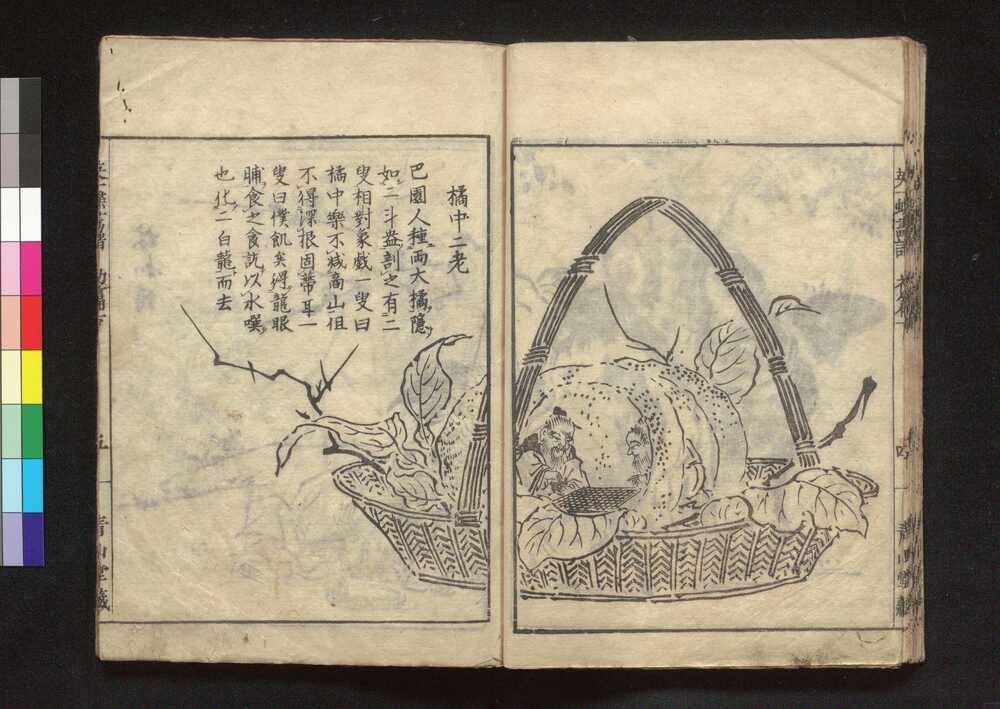 橘中二老
巴園人種両大橘隠
如二斗盎剖之有二
叟相對象戯一叟曰
橘中樂不減商山但
不得深根固蒂耳一
叟曰僕飢矣得龍眼
脯食之食訖以水噀
也化二白龍而去
五
青山堂蔵